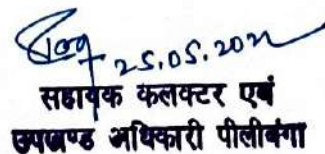 25.05.2022
सहायक कलक्टर एवं
उपखण्ड अधिकारी पीलीबंगा